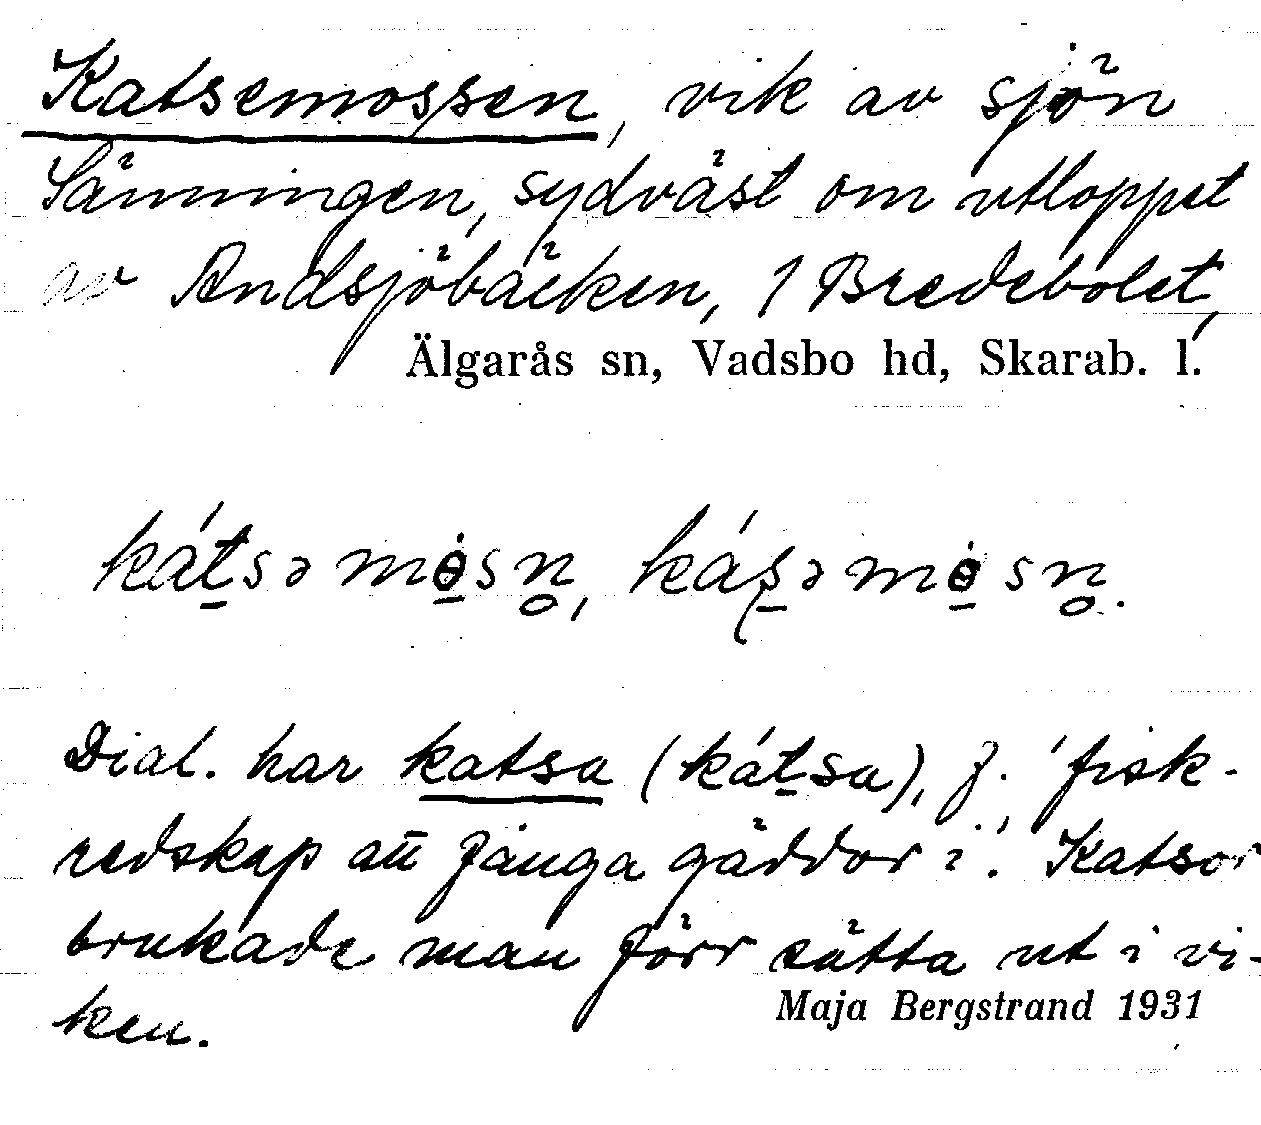 Katsemossen, vik av sjön
Sänningen, sydväst om utloppet
av Andsjöbäcken, 1 Bredebolet,
Älgarås sn, Vadsbo hd, Skarab. l.
kát̠sə mɵ̠̇sn̥, ká̠sə mɵ̠̇sn̥.
Dial. har katsa (kát̠sa), f., 'fisk-
redskap att fånga gäddor i'. Katsor
brukade man förr sätta ut i vi-
ken.
Maja Bergstrand 1931